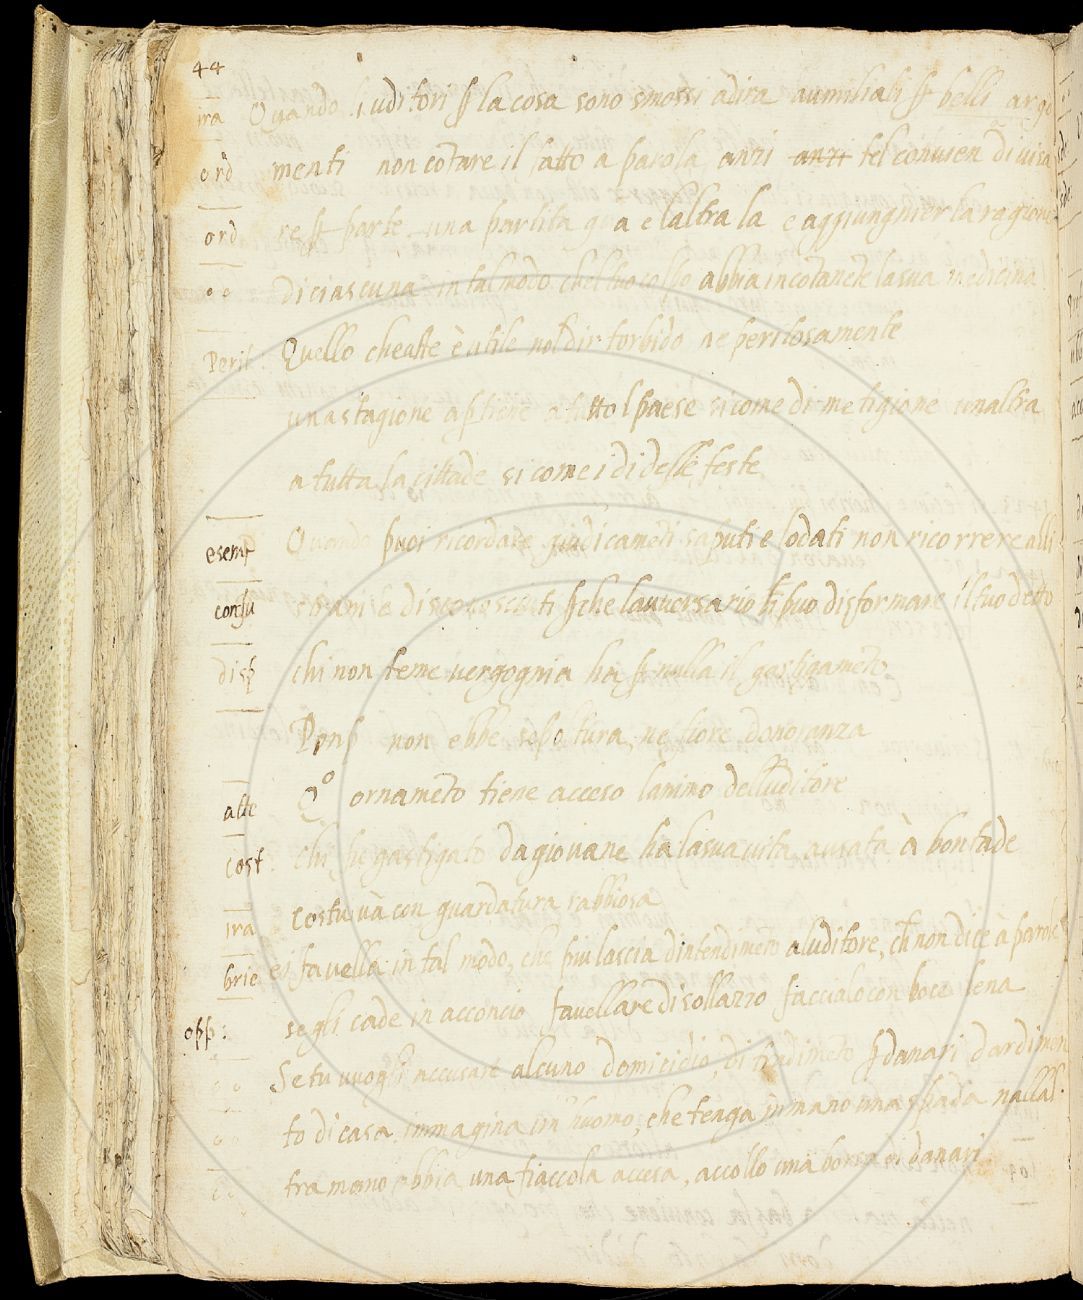 44
ira Quando li uditori p la cosa sono smossi adira aumiliali p belli argo
ord menti non cõtare il fatto a parola, anzi anzi tel conuien diuisa
ord re p parte una partita qua e laltra la e aggiunghier la ragione
di ciascuna in tal modo chel tuo collo abbia incõtanẽte la sua medicina
Perit: Quello cheatte è utile nol dir torbido ne perilosamente
una stagione aptiene a tuttol paese sicome di metigione unaltra
a tutta la cittade si come i di delle feste
esemp Quando puoi ricordare giudicamẽti saputi e lodati non ricorrere alli
consu strani e disconoscenti p che lauuersario ti può disformare il tuo detto
disp chi non teme vergognia ha p nulla il gastigamẽto
Pons non ebbe sepoltura, ne fiore donoranza
atte Qº ornamẽto tiene acceso lanimo delluditore
cost chi he gastigato da giovane ha la sua vita ausata à bontade
ira costui uà con guardatura rabbiosa
brie ei favella in tal modo, che piu lascia dintendimẽto aluditore, ch non dice à parole
opp: se gli cade in acconcio favellare di sollazzo faccialo con boce lena
Se tu uuogli accusare alcuno domicidio, di tradimẽto p danari dardimen
to di casa immagina un huomo, che tenga in mano una spada nallal
tra mano abbia una fiaccola accesa, accollo una borsa di danari